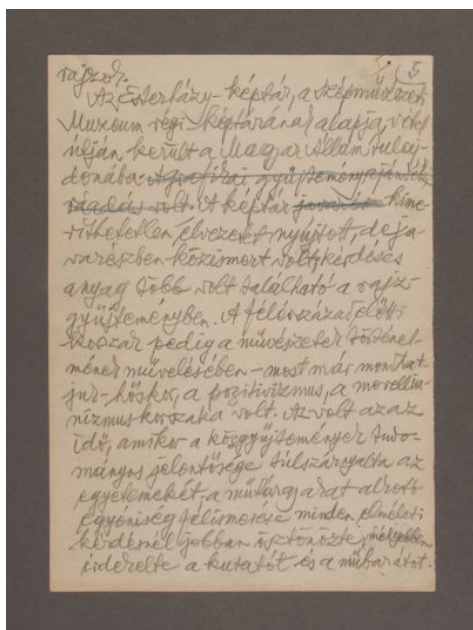 5
rajzok.
Az Esterházy-képtár, a Szépművészeti
Muzeum régi képtárának alapja, vétel
útján került a Magyar Állam tulaj-
donába. A grafikai gyűjtemény ajándék,
ráadás volt. A képtár kime-
ríthetetlen élvezetet nyújtott, de ja-
varészben közismert volt; kérdéses
anyag több volt található a rajz-
gyűjteményben. A félévszázad előtti
korszak pedig a művészetek történeté-
nek művelésében – most már mondhat-
juk – hőskor, a pozitivizmus, a morellia-
nizmus korszaka volt. Az volt az az
idő, amikor a közgyűjtemények tudo-
mányos jelentősége túlszárnyalta az
egyetemekét; a műtárgyakat alkotó
egyéniség felismerése minden elméleti
kérdésnél jobban ösztönözte, mélyebben
érdekelte a kutatót és a műbarátot.